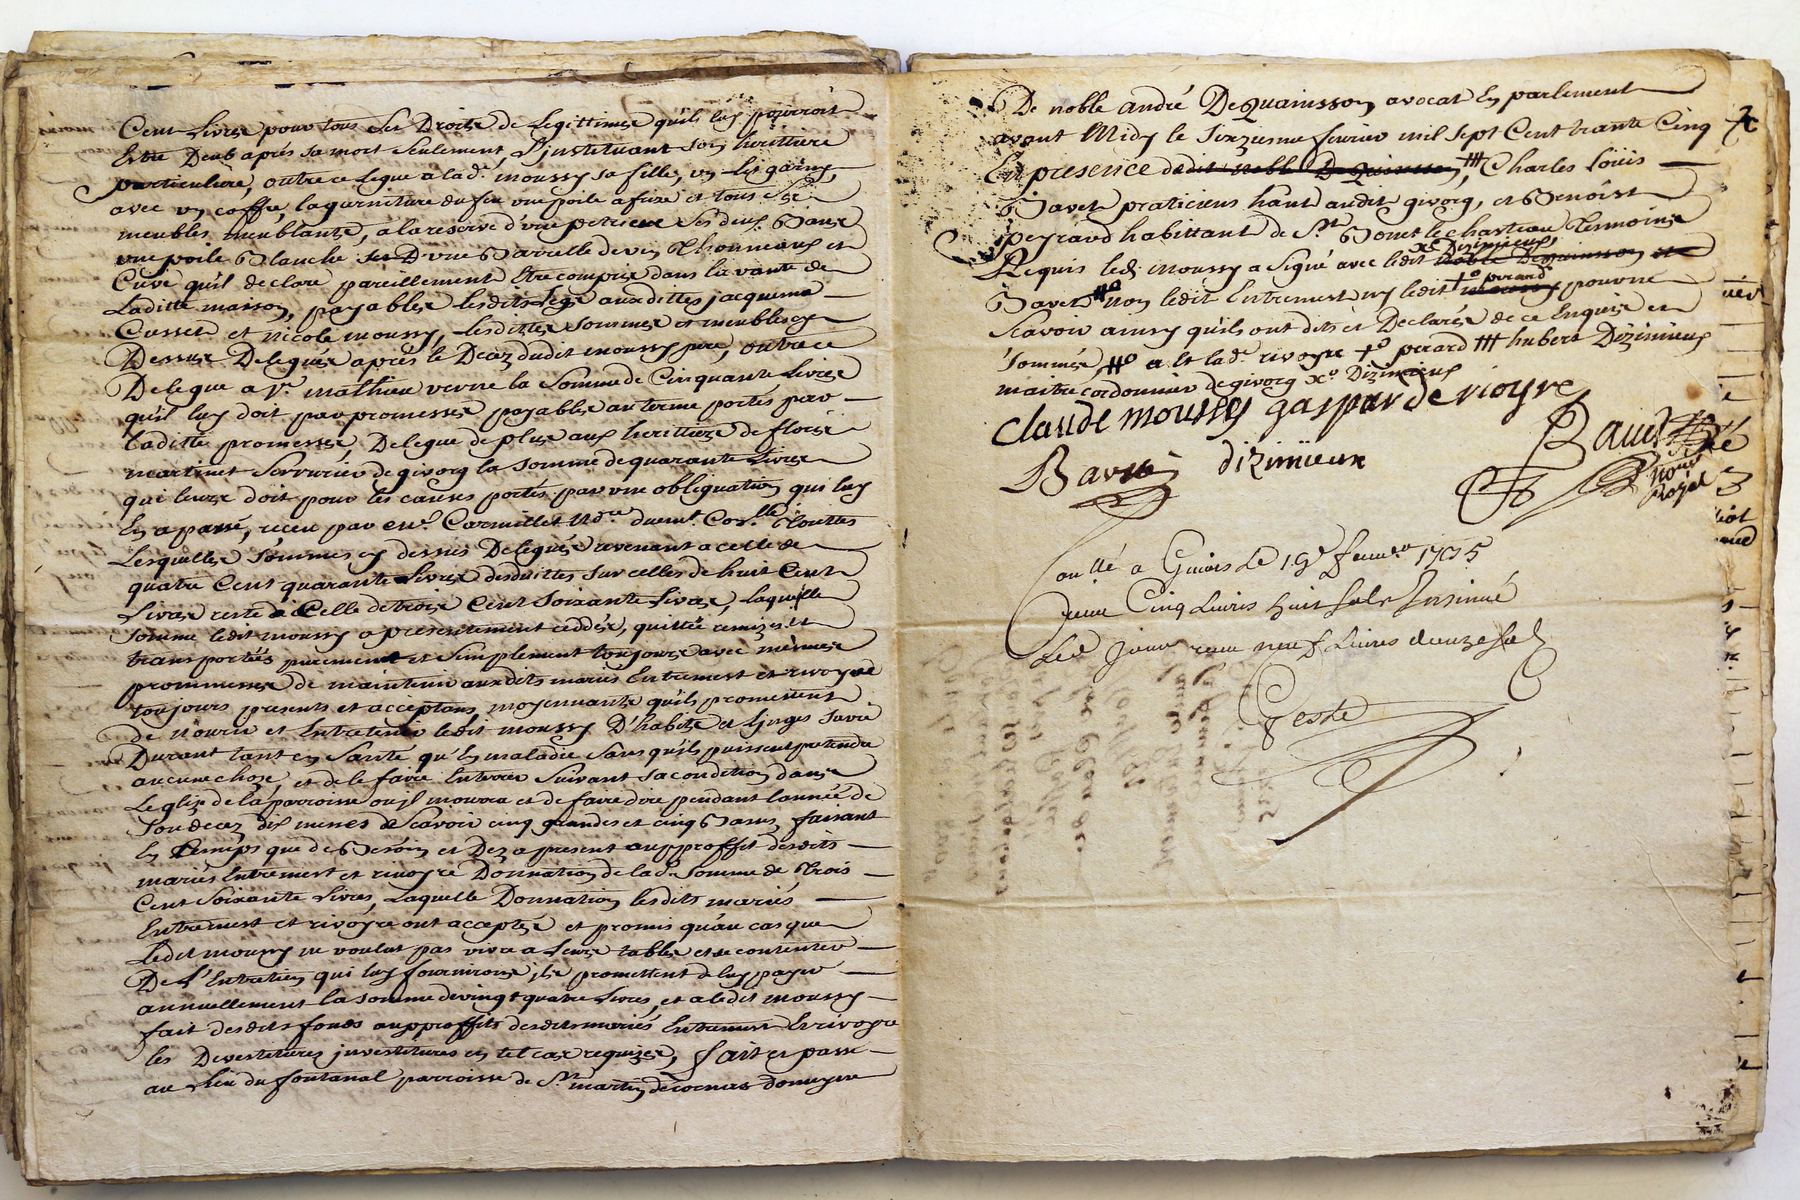 Cent Livres pour tous ses Droits de Legittimes qu'ils luy pourroit
Estre Deub après sa mort seulement, L'justituant son heritiere
particuliere, outre ce legue a lad. moussy sa fille, un
avec un coffre, la garniture du feu une poile a frire et tous ses
meubles meublants, a la reserve d'une petriere ses deux Bans
une poile Blanche et D'une Barrelle de vin Thonneaux et
Cuve qu'il declare pareillement Etre compris dans la vante de
Laditte maison, payables lesdits legs auxdittes jacquema
Cusset et nicole moussy, lesdittes sommes et meubles cy
Dessus Delegués après le Decez dudit moussy pere, outre ce
Delegue a Sr. mathieu verne la somme de Cinquante Livres
qu'il luy doit par promesses payables au terme portés par
Laditte promesses, Delegue de plus aux heritiers de
martinet serrurier de givorg la somme de quarante Livres
que leurs doit pour les causes portés par une obligation qui luy
En a passé, receu par me. Cormillet Ndre duemt. Coslle. Touttes
Lesquelles sommes cy dessus Delegués revenant a celle de
quatre Cent quarante Livres desduittes sur celles de huit Cent
Livres reste a Celle de trois Cent soixante Livres, laquelle
somme ledit moussy a presentement ceddés, quittée remises et
transportés purement et simplement toujours avec mêmes
prommesses de maintenir auxdits mariés Entremert et rivoyre
toujours presents et acceptans moyennants qu'ils promettent
de nourir et Entretenir ledit moussy D'habits et Linges sa vie
Durant tant en santé qu'En maladie sans qu'ils puissent pretendre
aucune chose, et de le faire Enterrer suivant sa condition dans
Leglize de la parroisse ou jl mourra et de faire dire pendant lannée de
son decez dix messes scavoir cinq grandes et cinq Basses, faisant
En Temps que de Besoin et Dez a present au proffit desdits
mariés Entremert et rivoyre Donnation de lad. somme de Trois
Cent soixante Livres, Laquelle Donnation lesdits mariés
Entremert et rivoyre ont acceptés et promis qu'au cas que
Ledit moussy ne voulut pas vivre a leurs tables et se contenter
De L'Entretien qui luy fourniront jls promettent de luy payer
annuellement la somme de vingt quatre Livres, et a ledit moussy
fait desdits fonds au proffits desdits mariés Entremert Et rivoyre
les Devestitures jnvestitures en tel cas requizes, fait et passé
au lieu du fontanal parroisse de St. martin de cornas domeyne
De noble andré DeQuainsson avocat En parlement
avant Midy le seizieme fevrier mil sept Cent trante Cinq
En presence dudit noble DeQuainsson, ### Charles Loüis
Bavet praticiens haut audit givorg, et Benoist
peyraud habittant de St. Bonet le chasteau Temoins
Requis led. moussy a signé avec ledit noble Dequainsson et
xo Dizimieux
Bavet ##o non ledit Entremert ny ledit moussy pour ne
+o perard
scavoir ainsy qu'ils ont dits et Declarés de ce Enquis et
sommés ##o et lad. rivoyre +o perard ### hubert Dizimieux
maitre cordonnier de givorg xo Dizimieux
Claude moussy gaspar de rioyre
Bavet dizimieux Baud
Nore Royal
Con.llé a Givors Le 19e fevrier 1735
Receu Cinq Livres huit sols Insinué
Led. Jour receu neuf Livres douze sols
Geste